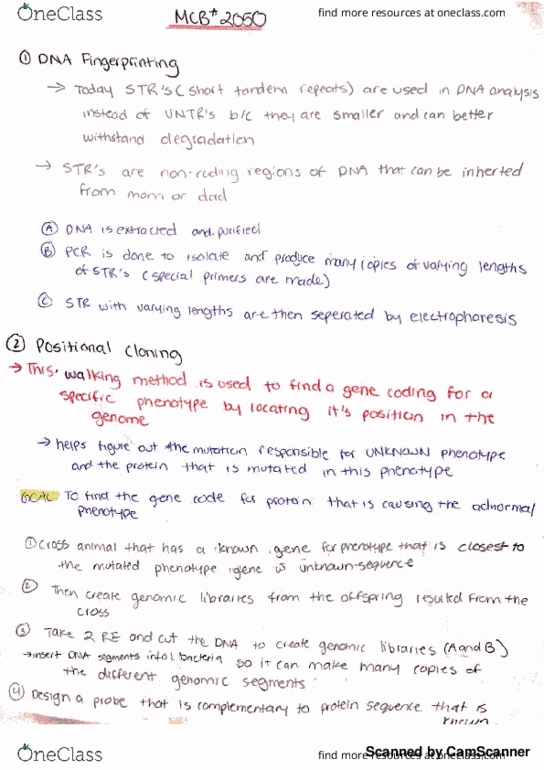 OneClass
find more resources at oneclass.com
MCB*2050
① DNA Fingerprinting
→ Today STR's (short tandem repeats) are used in DNA analysis
instead of VNTR's b/c they are smaller and can better
withstand degradation
→ STR's are non-coding regions of DNA that can be inherited
from mom or dad
Ⓐ DNA is extracted and purified
Ⓑ PCR is done to isolate and produce many copies of varying lengths
of STR's (special primers are made)
Ⓒ STR with varying lengths are then seperated by electrophoresis
② Positional Cloning
→ This walking method is used to find a gene coding for a
specific phenotype by locating it's position in the
genome
→ helps figure out the mutation responsible for UNKNOWN phenotype
and the protein that is mutated in this phenotype
GOAL To find the gene code for protein that is causing the adnormal
phenotype
① Cross animal that has a known gene for phenotype that is closest to
the mutated phenotype gene w unknown sequence
② Then create genomic libraries from the offspring resulted from the
cross
③ Take 2 RE and cut the DNA to create genomic libraries (A and B)
→ insert DNA segments into bacteria so it can make many copies of
the different genomic segments
④ Design a probe that is complementary to protein sequence that is
known
OneClass
find more resources at oneclass.com
Scanned by CamScanner